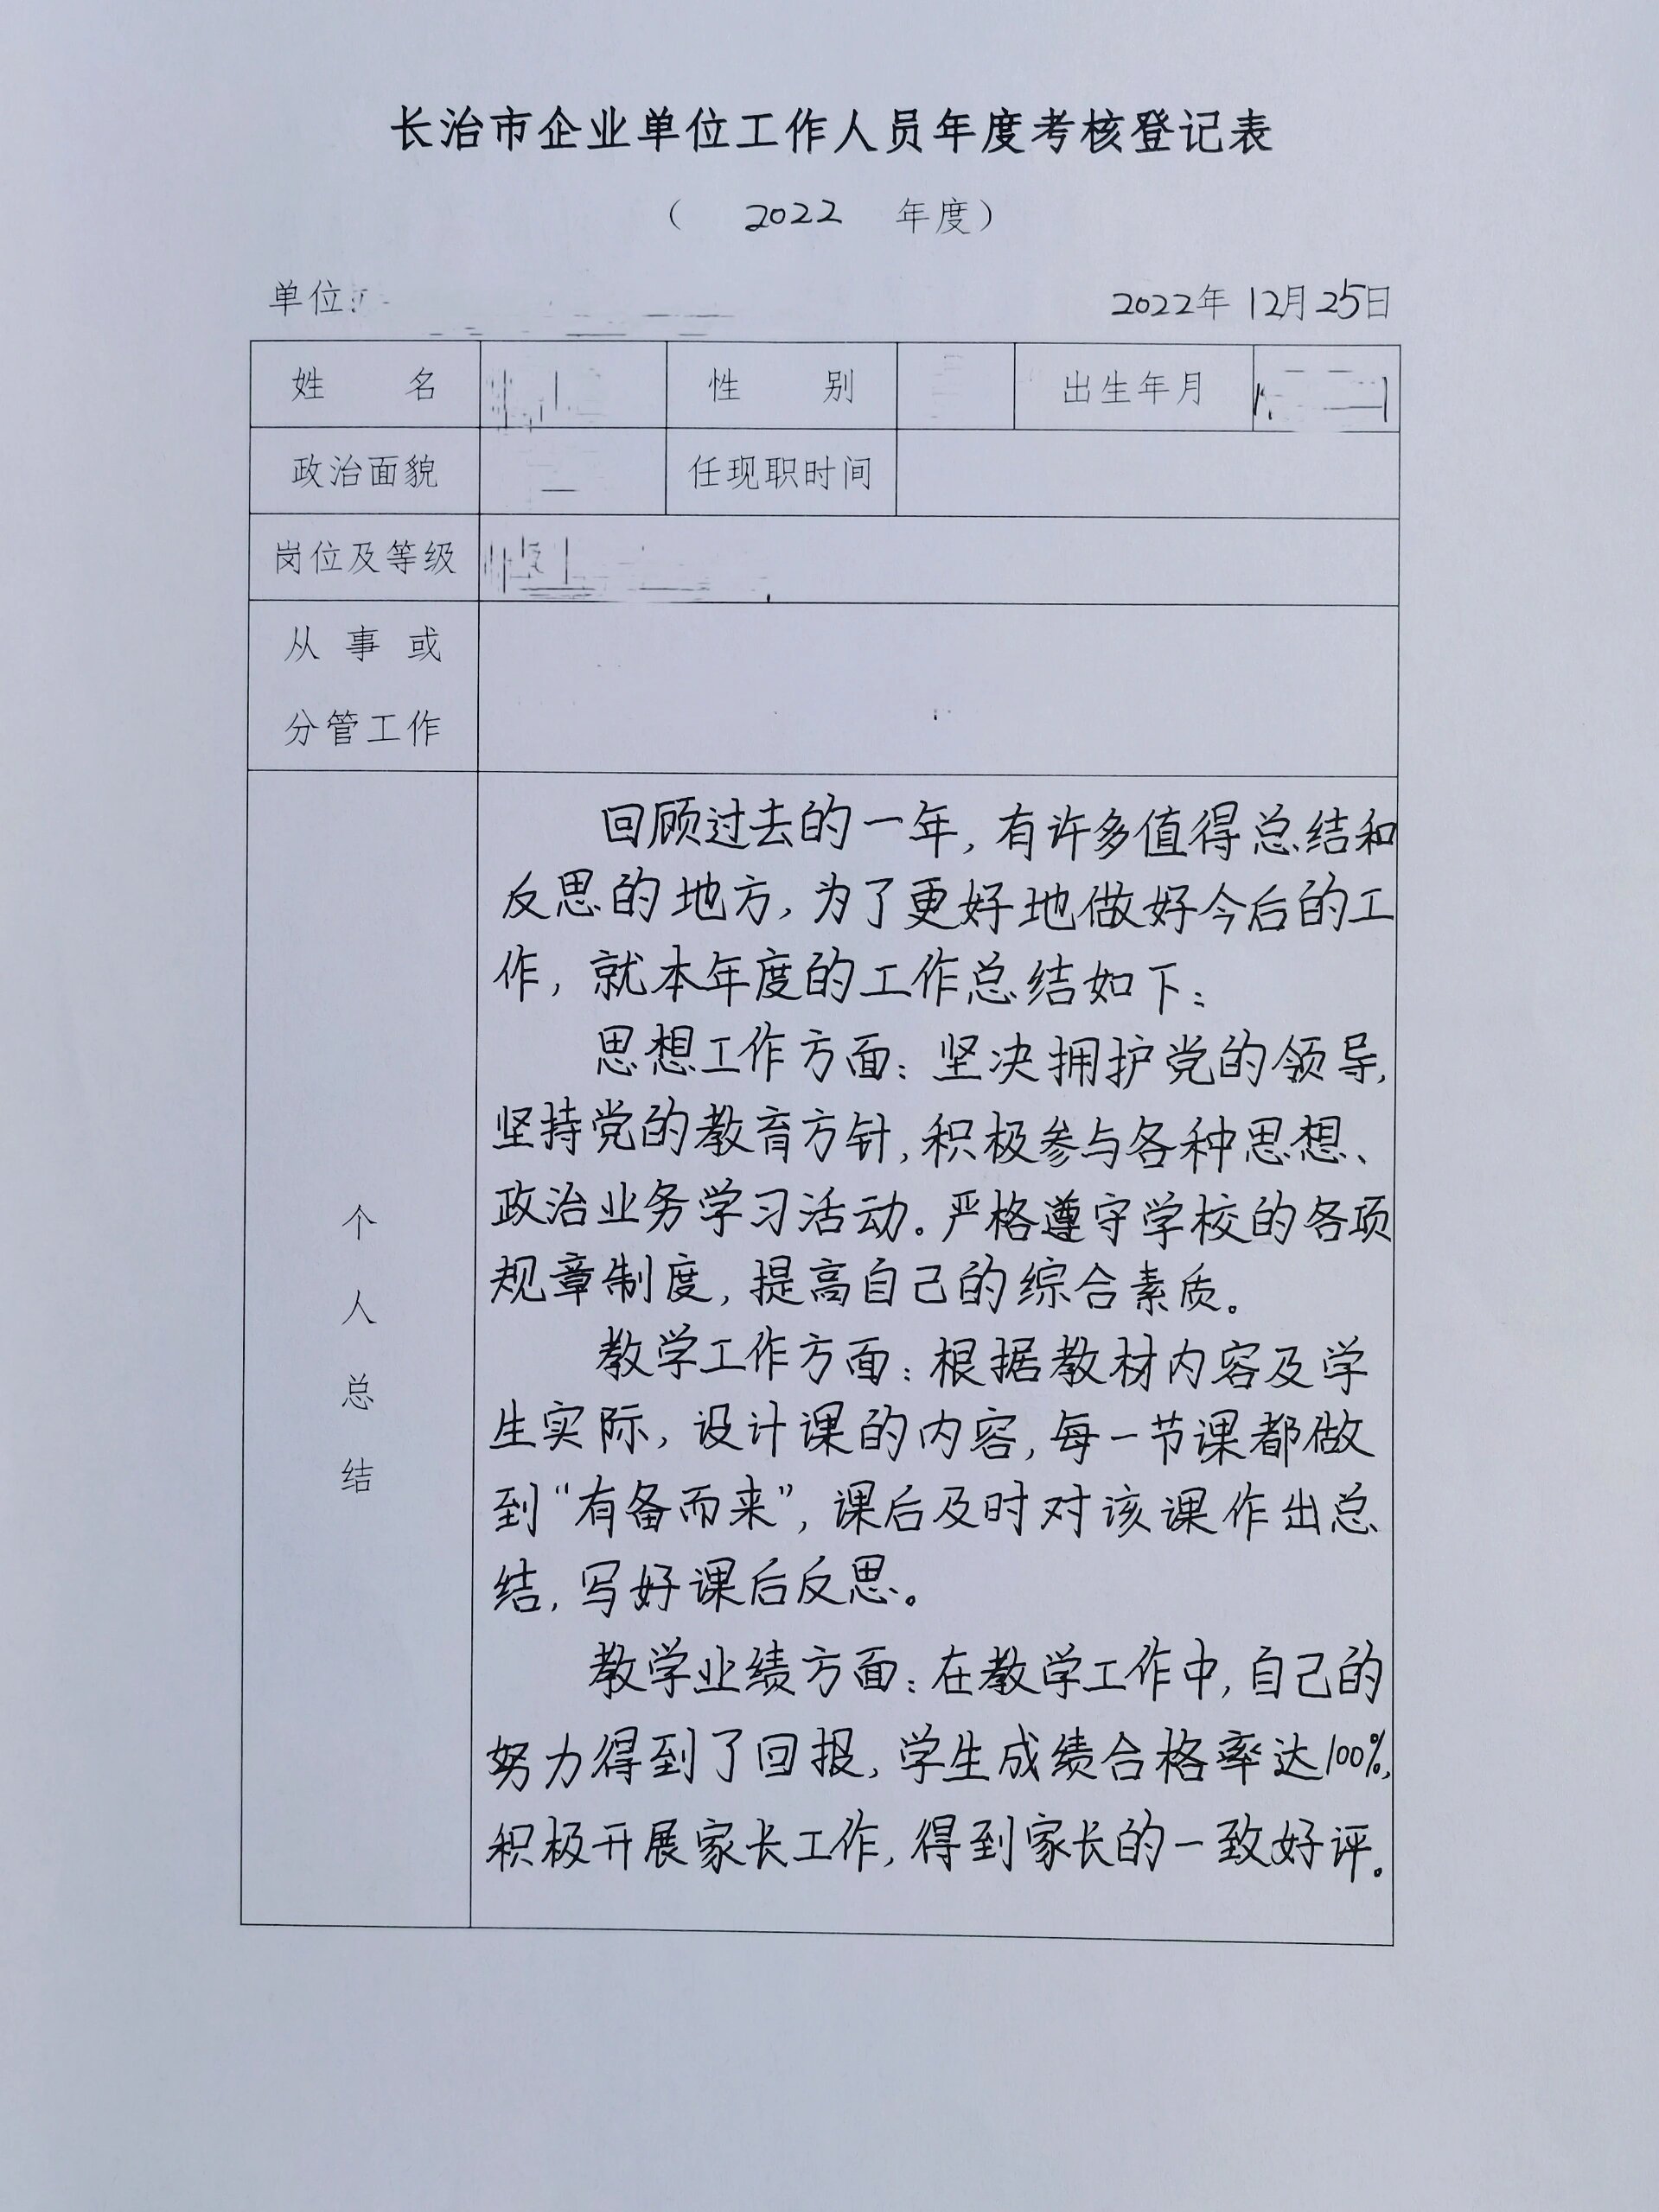 长治市企业单位工作人员年度考核登记表
（ 2022 年度）
单位: 2022年 12月 25日
姓 名 性 别 出生年月
政治面貌 任现职时间
岗位及等级
从 事 或
分管工作
个
人
总
结
回顾过去的一年,有许多值得总结和
反思的地方,为了更好地做好今后的工
作,就本年度的工作总结如下:
思想工作方面:坚决拥护党的领导,
坚持党的教育方针,积极参与各种思想、
政治业务学习活动。严格遵守学校的各项
规章制度,提高自己的综合素质。
教学工作方面:根据教材内容及学
生实际,设计课的内容,每一节课都做
到“有备而来”,课后及时对该课作出总
结,写好课后反思。
教学业绩方面:在教学工作中,自己的
努力得到了回报,学生成绩合格率达100%,
积极开展家长工作,得到家长的一致好评。